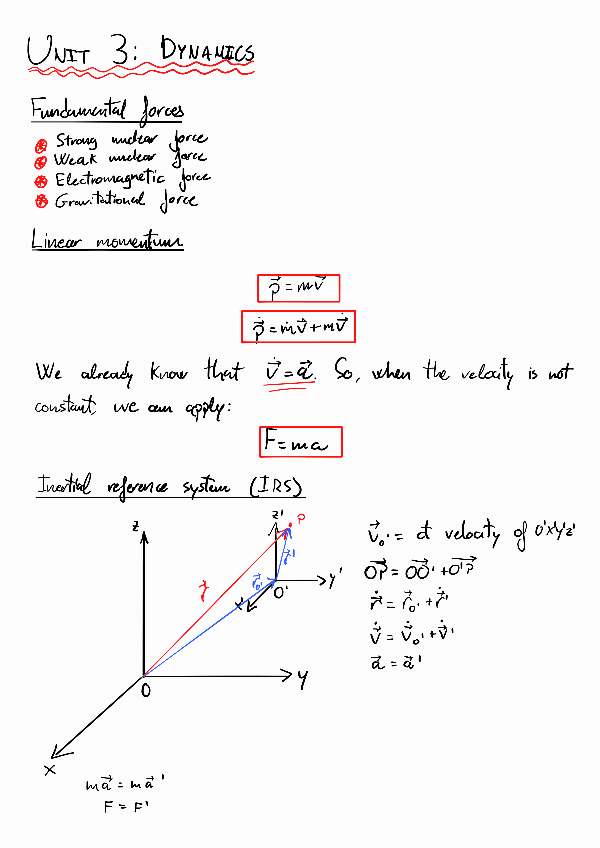 UNIT 3: DYNAMICS
Fundamental forces
Strong nuclear force
Weak nuclear force
Electromagnetic force
Gravitational force
Linear momentum
p⃗ = mv⃗
ṗ⃗ = ṁv⃗ + mv̇⃗
We already know that v̇⃗ = a⃗. So, when the velocity is not
constant, we can apply:
F = ma
Inertial reference system (IRS)
z
z'
P
r⃗
r⃗o'
r⃗'
x'
O'
y'
O
y
x
v⃗o' = ct velocity of O'x'y'z'
OP⃗ = OO'⃗ + O'P⃗
ṙ⃗ = ṙ⃗o' + ṙ⃗'
v̇⃗ = v̇⃗o' + v̇⃗'
a⃗ = a⃗'
ma⃗ = ma⃗'
F = F'